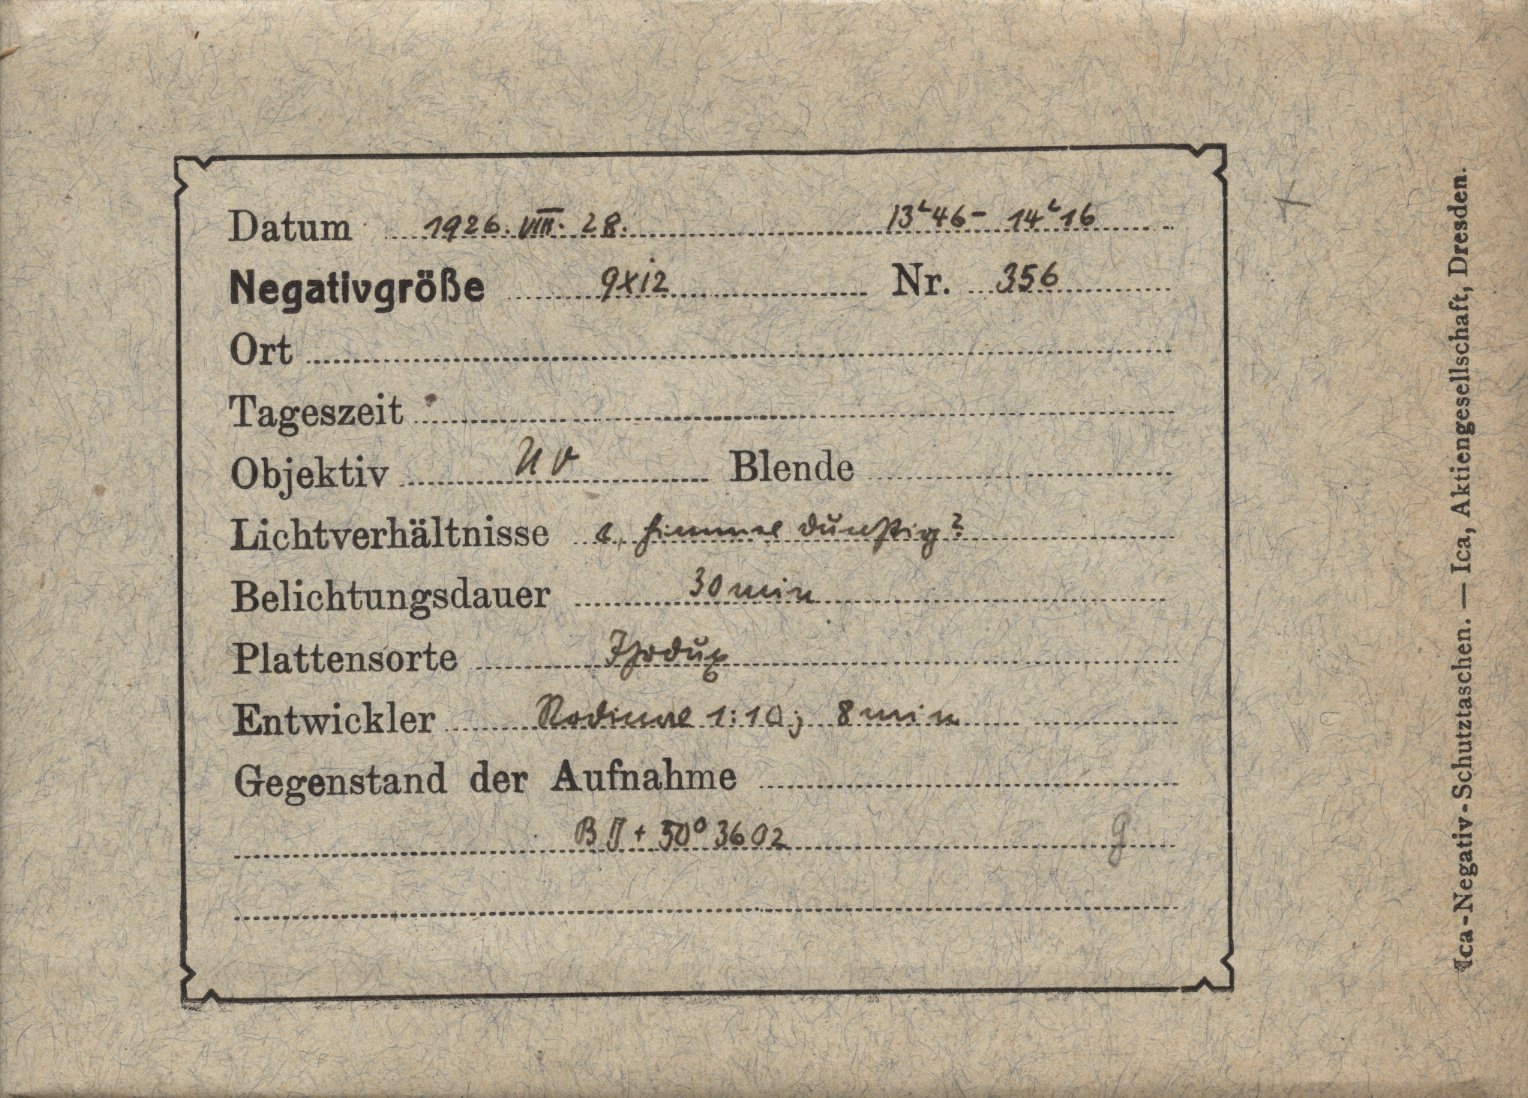 Datum 1926. VIII. 28. 13ʰ46 - 14ʰ16
Negativgröße 9x12 Nr. 356
Ort
Tageszeit
Objektiv UV Blende
Lichtverhältnisse Himmel dunstig?
Belichtungsdauer 30 min
Plattensorte
Entwickler Rodinal 1:10; 8 min
Gegenstand der Aufnahme
BD + 50° 3602
g
Ica-Negativ-Schutztaschen. — Ica, Aktiengesellschaft, Dresden.